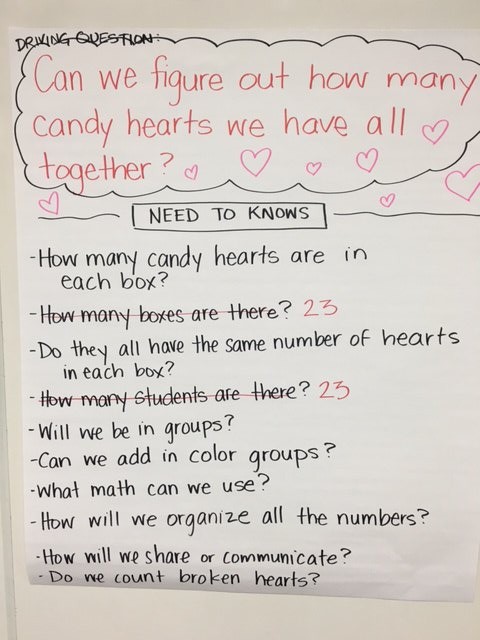 DRIVING QUESTION:
Can we figure out how many
candy hearts we have all
together?
NEED TO KNOWS
-How many candy hearts are in
each box?
-How many boxes are there? 23
-Do they all have the same number of hearts
in each box?
-How many students are there? 23
-Will we be in groups?
-Can we add in color groups?
-What math can we use?
-How will we organize all the numbers?
-How will we share or communicate?
-Do we count broken hearts?